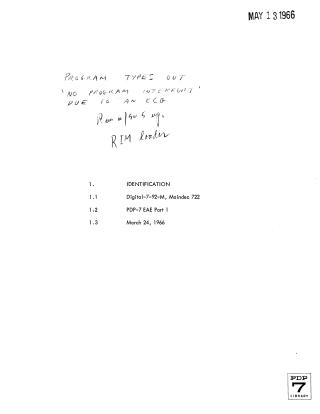 MAY 13 1966
PROGRAM TYPES OUT
'NO PROGRAM INTERRUPT'
DUE TO AN ECO
Run
RIM loader
1. IDENTIFICATION
1.1 Digital-7-92-M, Maindec 722
1.2 PDP-7 EAE Part 1
1.3 March 24, 1966
PDP
7
LIBRARY